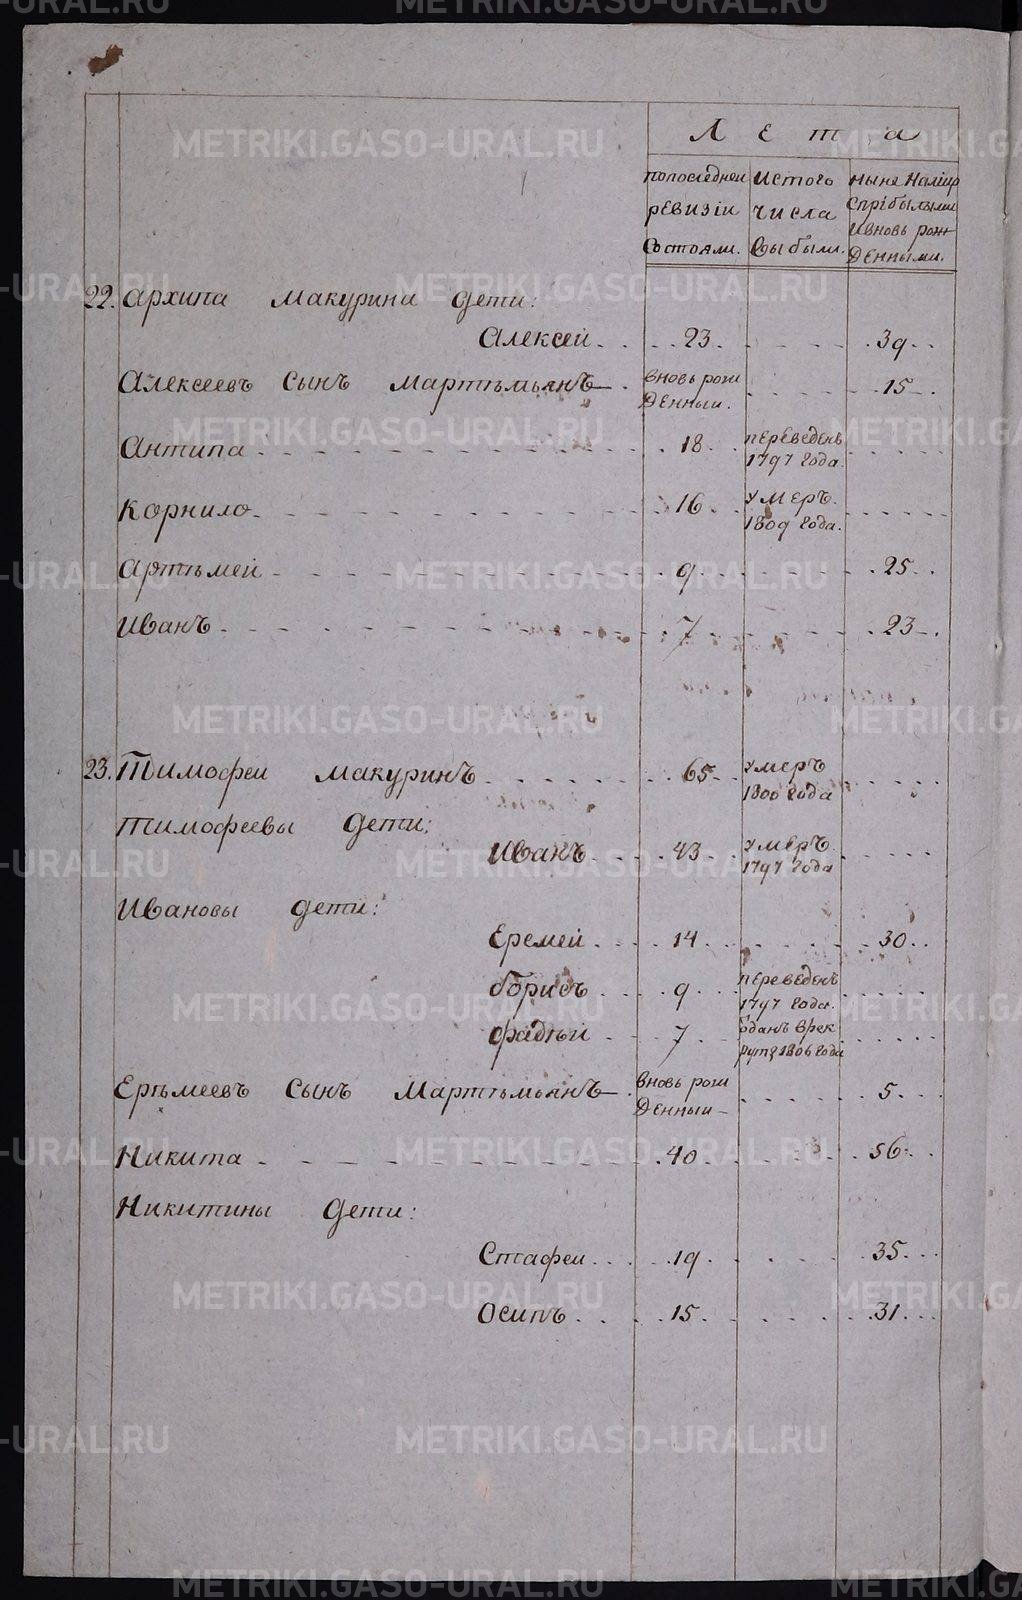 Лета
попоследней истого ныне налицо
ревизіи числа сприбылыми
состояли. выбыли. ивновь рож
денными.
22. Архипа Макурина дети:
Алексей . . . 23 . . . 39 . .
Алексеевъ сынъ Мартемьянъ — вновь рож . . . 15 .
денный.
Антипа . . . 18 . . переведенъ . . .
1797 года.
Корнило . . . 16 . . умеръ. . . .
1809 года.
Артемей . . . 9 . . . 25 . .
Иванъ . . . 7 . . . 23 .
23. Тимофей Макуринъ . . . 65 . . умеръ . . .
1800 года
Тимофеевы дети:
Иванъ . . . 43 . . умеръ . . .
1797 года
Ивановы дети:
Еремей . . . 14 . . . 30 . .
Борисъ . . . 9 . . переведенъ . . .
1797 года.
Фадѣй . . . 7 . . отданъ врек . . .
рутъ 1806 года
Еремеевъ сынъ Мартемьянъ — вновь рож . . . 5 . . .
денный —
Никита . . . 40 . . . 56 . .
Никитины дети:
Стафеи . . . 19 . . . 35 . . .
Осипъ . . . 15 . . . 31 . . .
METRIKI.GASO-URAL.RU